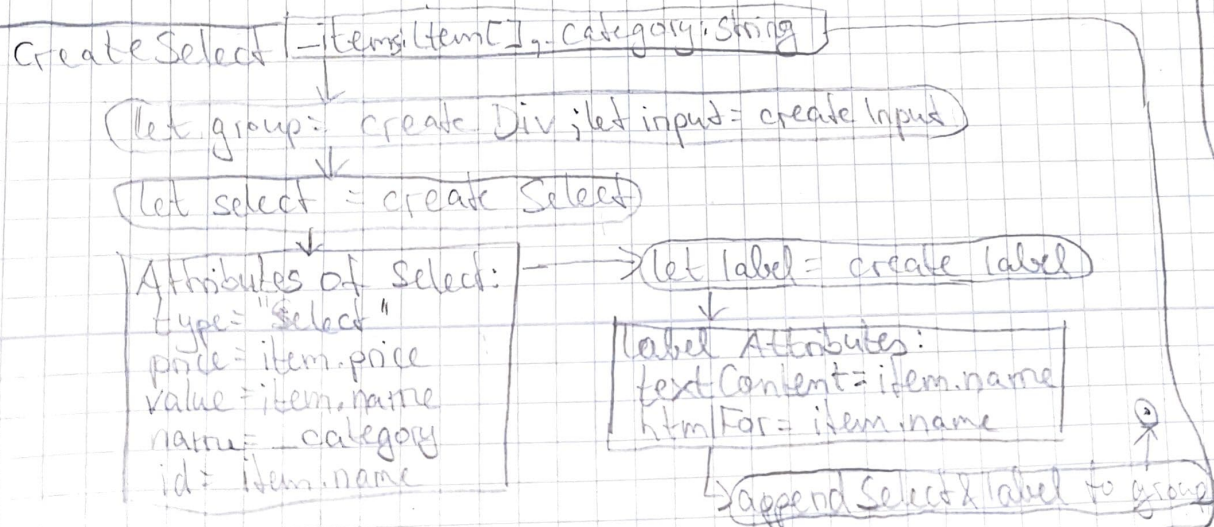 CreateSelect _items:Item[], _category:string
let group= create Div; let input= create Input
let select = create Select
Attributes of Select:
type="select"
price=item.price
value=item.name
name=_category
id= item.name
let label= create label
label Attributes:
textContent=item.name
htmlFor= item.name
append Select & label to group